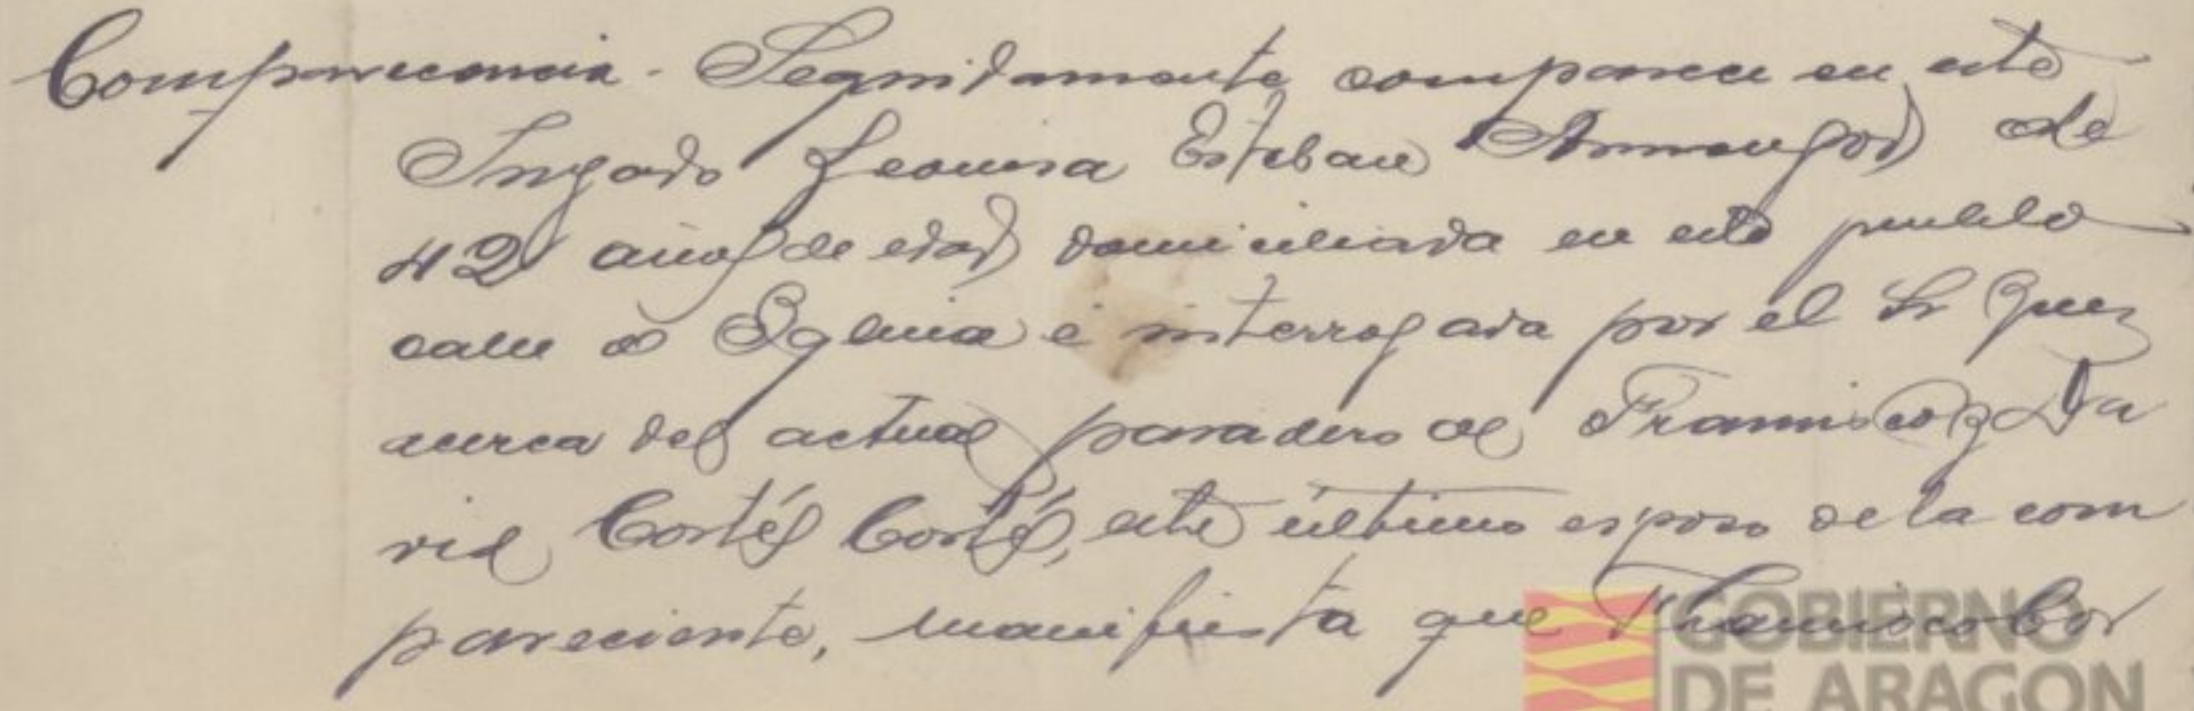 Comparecencia - Seguidamente comparece en este
Juzgado Leonisa Esteban Armengod de
42 años de edad domiciliada en este pueblo
calle de Iglesia é interrogada por el Sr Juez
acerca del actual paradero de Francisco y Da
vid Cortés Cortés, este último esposo de la com
pareciente, manifiesta que Francisco Cor
GOBIERNO
DE ARAGON